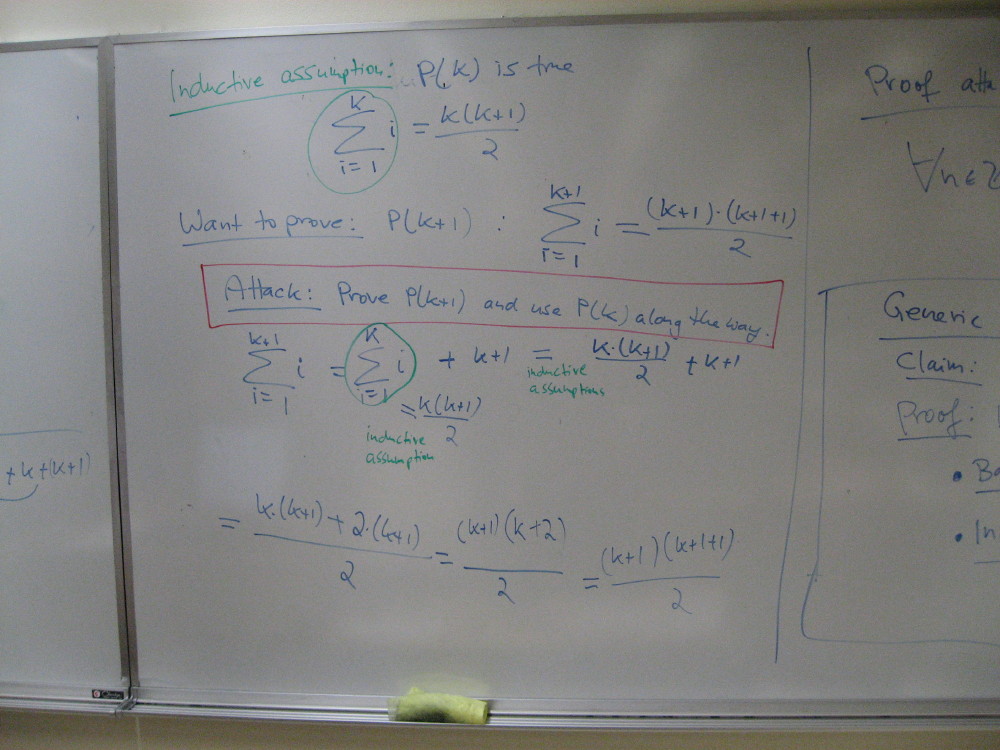 Inductive assumption: P(k) is true
k
∑ i = k(k+1)/2
i=1
Want to prove: P(k+1) : ∑_{i=1}^{k+1} i = (k+1)·(k+1+1)/2
Attack: Prove P(k+1) and use P(k) along the way.
∑_{i=1}^{k+1} i = ∑_{i=1}^{k} i + k+1 = k·(k+1)/2 + k+1
inductive
assumptions
= k(k+1)/2
inductive
assumption
= k·(k+1) + 2·(k+1)/2 = (k+1)(k+2)/2 = (k+1)(k+1+1)/2
+ k + (k+1)
Proof atte
∀n∈ℤ
Generic
Claim:
Proof:
• Ba
• In